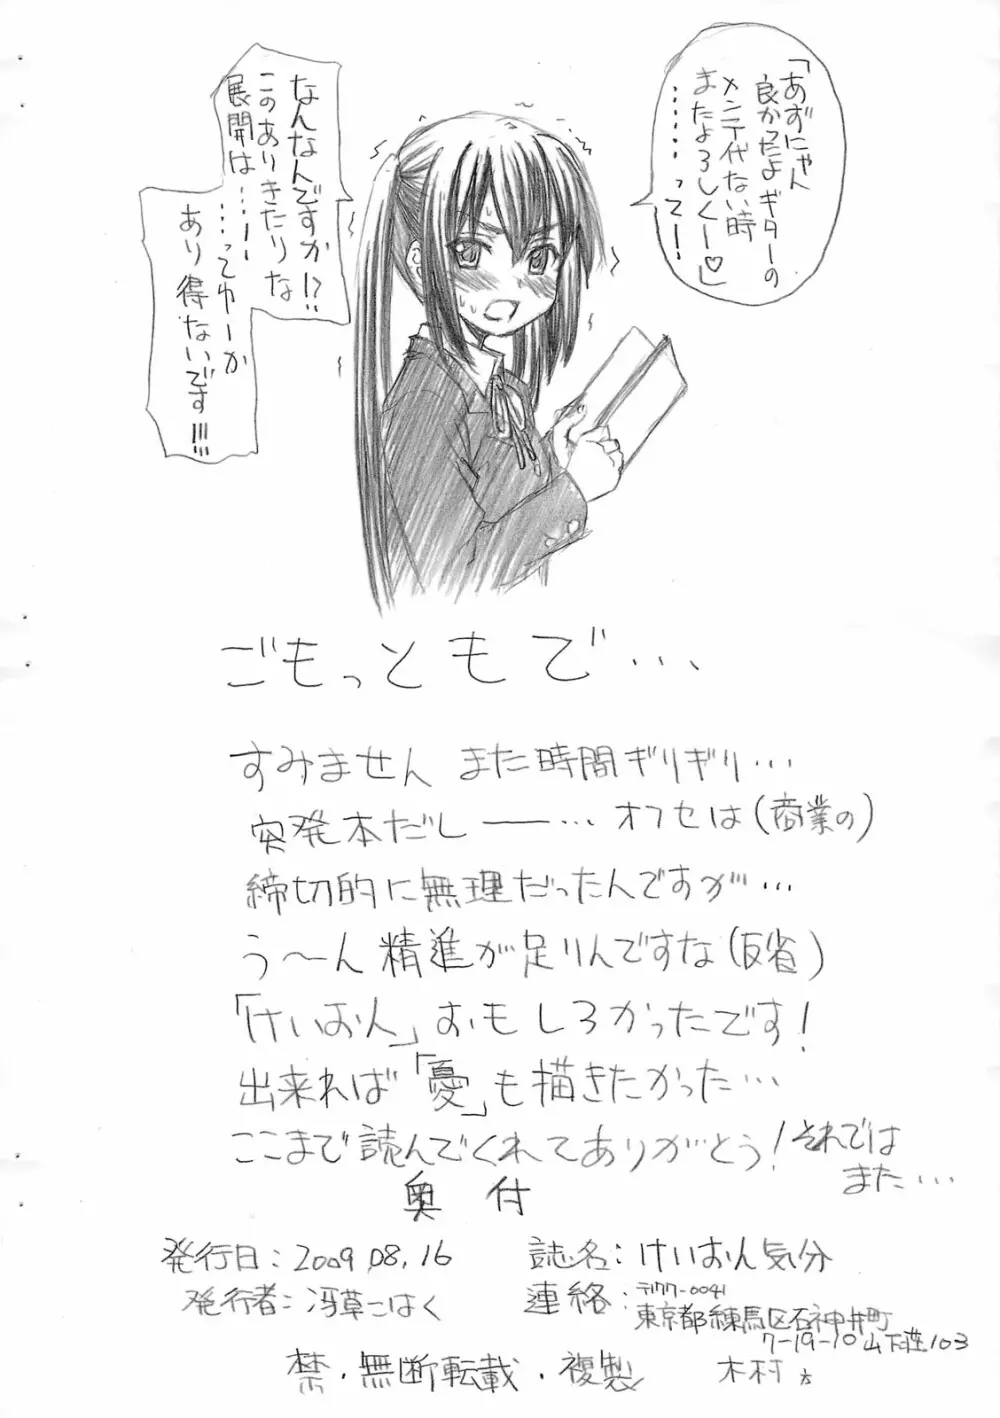 「あずにゃん
良かったよギターの
メンテ代ない時
またよろしくー♡」
………って！
なんなんですか!?
このありきたりな
展開は…！
…ってゆーか
あり得ないです!!!
ごもっともで…
すみません また時間ギリギリ…
突発本だし――… オフセは(商業の)
締切的に無理だったんですが…
う～ん 精進が足りんですな(反省)
「けいおん」おもしろかったです！
出来れば「憂」も描きたかった…
ここまで読んでくれてありがとう！それでは
また…
奥付
発行日：2009.08.16
誌名：けいおん気分
発行者：冴草こはく
連絡：〒177-0041
東京都練馬区石神井町
7-19-10 山下荘103
木村
禁・無断転載・複製